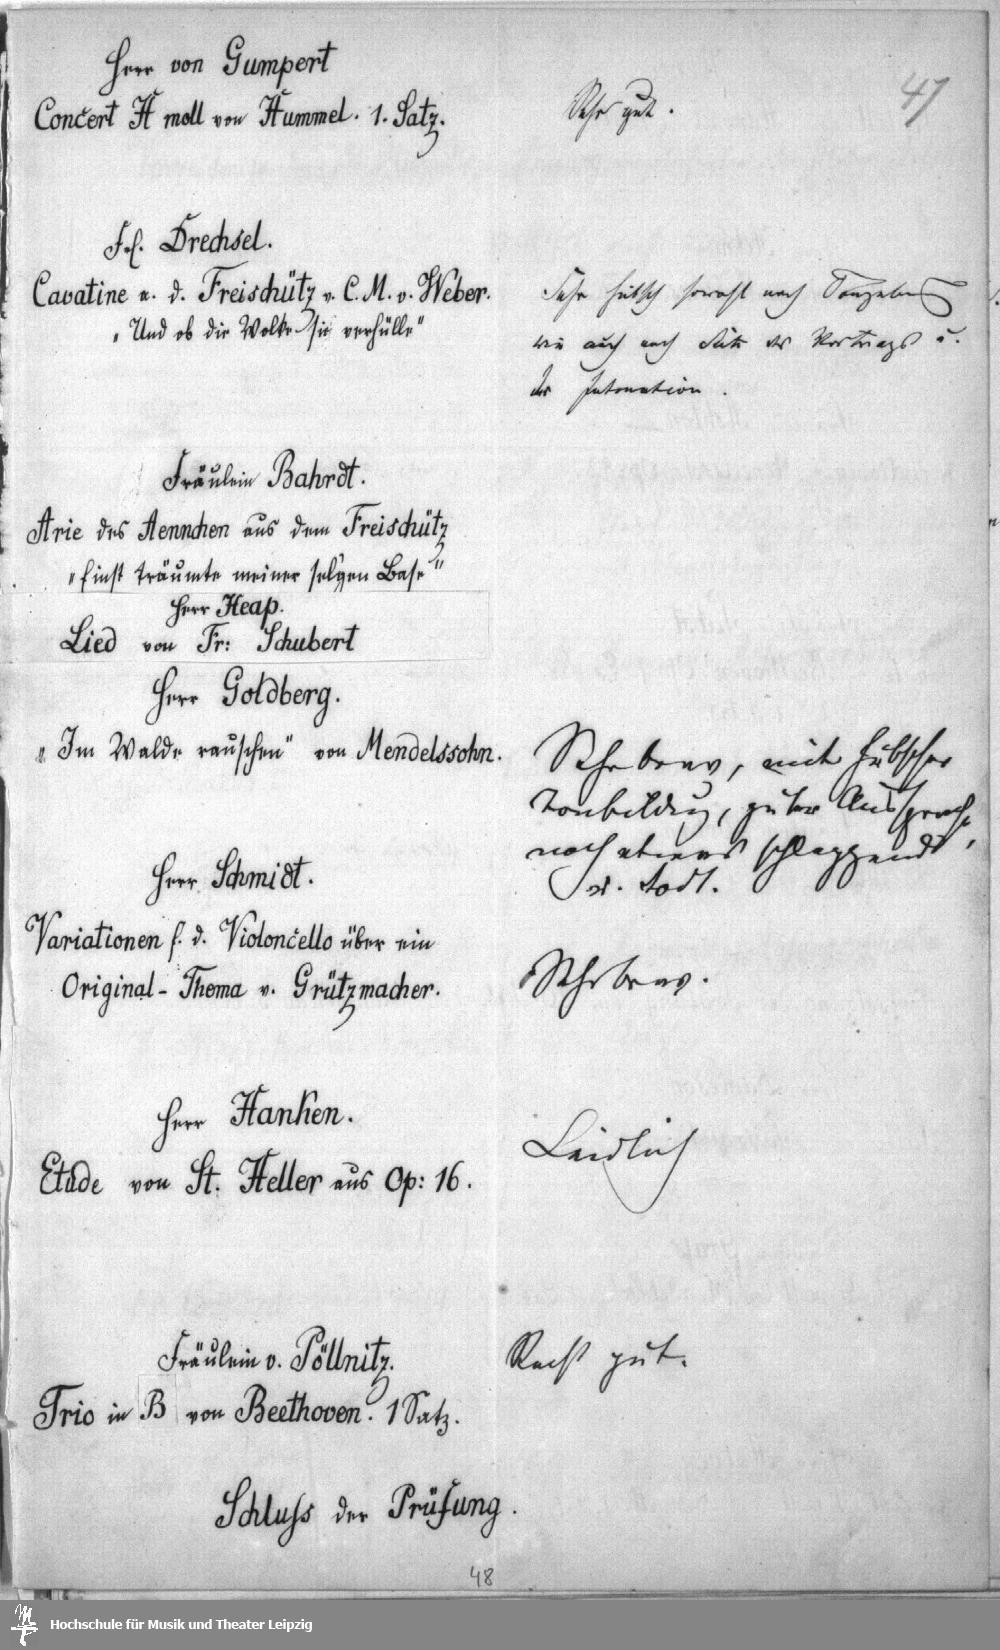 47
Herr von Gumpert
Concert H moll von Hummel. 1. Satz.
Sehr gut.
Frl. Drechsel.
Cavatine a. d. Freischütz v. C. M. v. Weber.
„Und ob die Wolke sie verhülle"
Sehr hübsch sowohl nach Tongebung
wie auch nach Seite des Vortrags u.
der Intonation.
Fräulein Bahrdt.
Arie des Aennchen aus dem Freischütz
„Einst träumte meiner sel'gen Base"
Herr Heap.
Lied von Fr: Schubert
Herr Goldberg.
„Im Walde rauschen" von Mendelssohn.
Sehr brav, mit hübscher
Tonbildung, guter Aussprache,
noch etwas schleppend
u. todt.
Herr Schmidt.
Variationen f. d. Violoncello über ein
Original-Thema v. Grützmacher.
Sehr brav.
Herr Hanken.
Etude von St. Heller aus Op: 16.
Leidlich
Fräulein v. Pöllnitz.
Trio in B von Beethoven. 1 Satz.
Recht gut.
Schluss der Prüfung.
48
Hochschule für Musik und Theater Leipzig